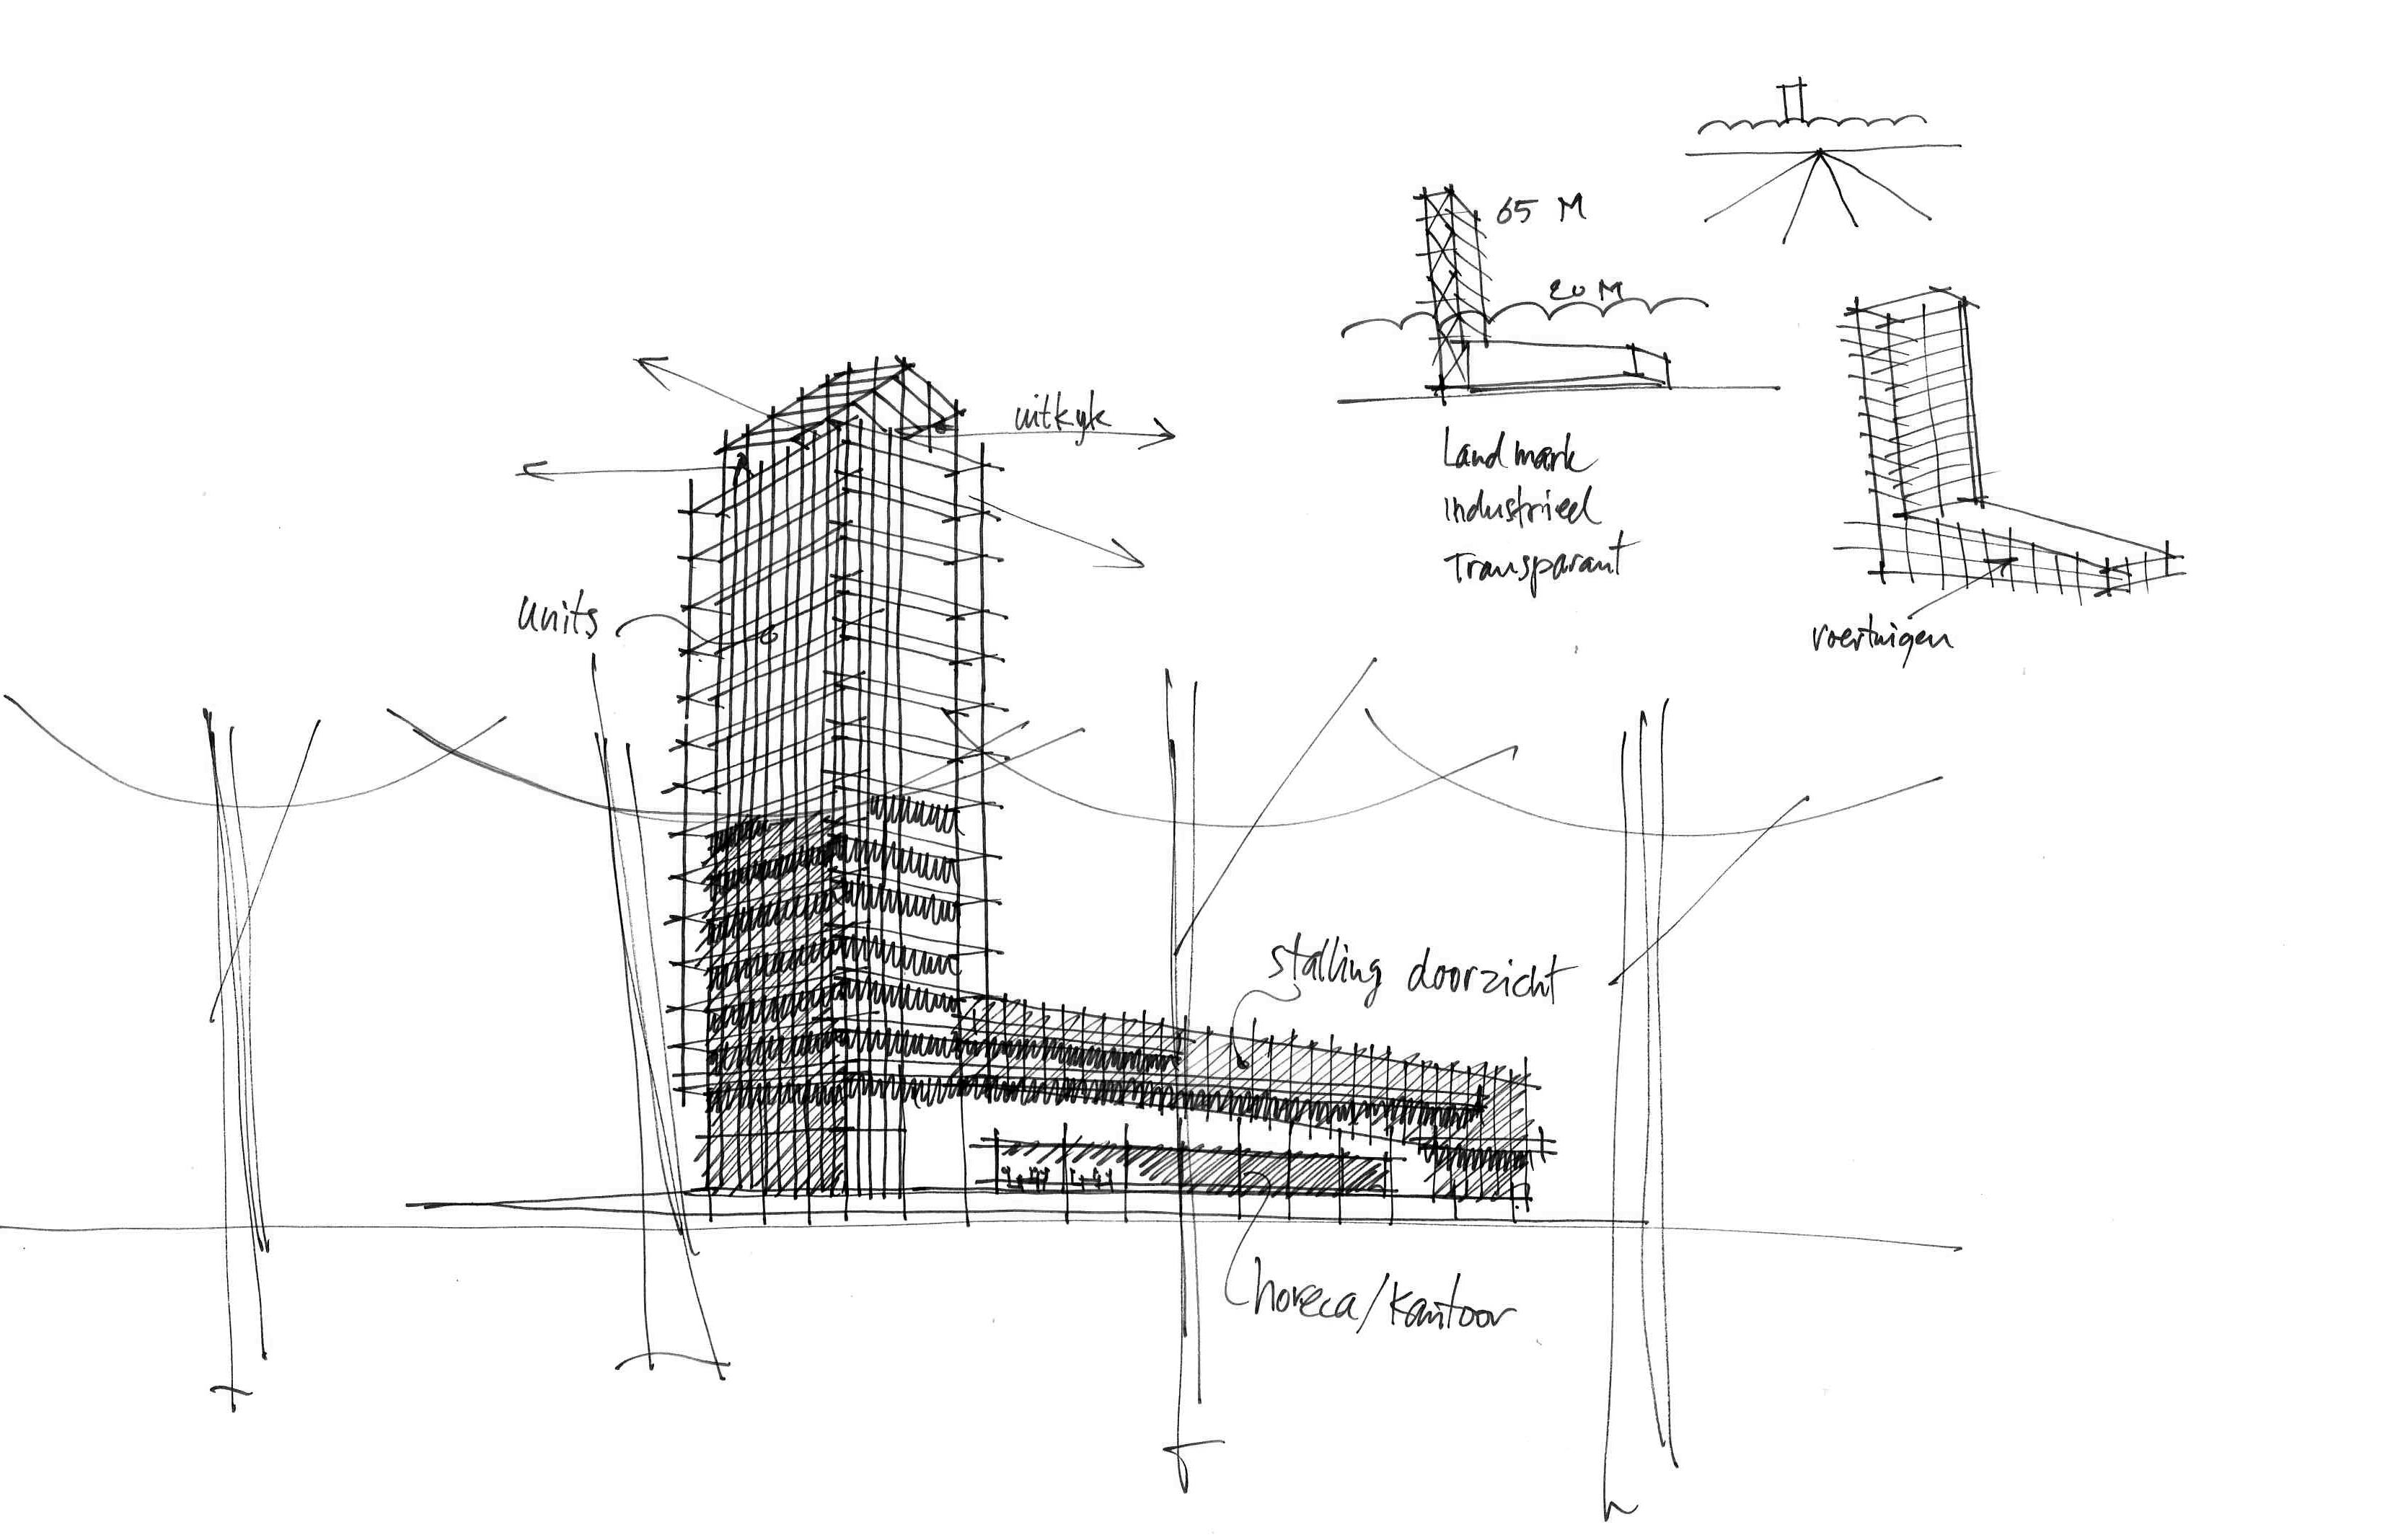 65 M
20 M
uitkyk
Landmark
Industrieel
Transparant
units
voertuigen
stalling doorzicht
horeca/kantoor